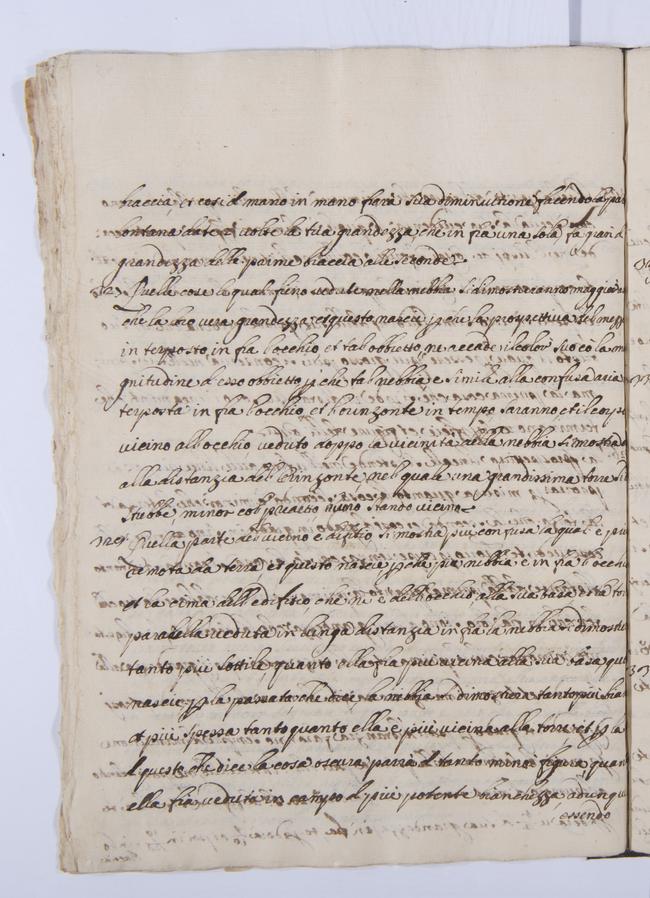 braccia, et cosi d mano in mano farà sua diminutione facendo
lontana dute 2 volte la tua grandezza, che in fra una sola fa
grandezza delle prime braccia alle seconde
Quelle cose le quali fieno vedute nella nebbia si dimosteranno maggior
che la loro vera grandezza, et questo nascie che la prospettiva del mezz
in terposto in fra l'occhio et tal obbietto, accade il color suo co la ma
gnitudine d esso obbietto che tal nebbia e simile alla confusa aria
terposta in fra l'occhio, et l'orinzonte in tempo saranno et il corpo
vicino all occhio veduto doppo la vicinita della nebbia si mostra
alla distanzia dell orinzonte nel quale una grandissima torre si
strebbe, minor col huomo stando vicino
Quella parte del vicino edifitio si mostra piu confusa la qual è piu
remota da terra, et questo nascie che piu nebbia è in fra l'occhio
et la cima dell edifitio che n è dell occhio alla sua basa et la torre
parallella veduta in lunga distanzia in fra la nebbia si dimostra
tanto piu sottile, quanto ella fia piu vicina alla sua basa que
nascie la passata, che dice, la nebbia si dimosterà tanto piu bian
et piu spessa tanto quanto ella è piu vicina alla torre et la
d questo che dice la cosa oscura parrà d tanto minor figura, quan
ella fia veduta in campo d piu potente bianchezza adunqu
essendo